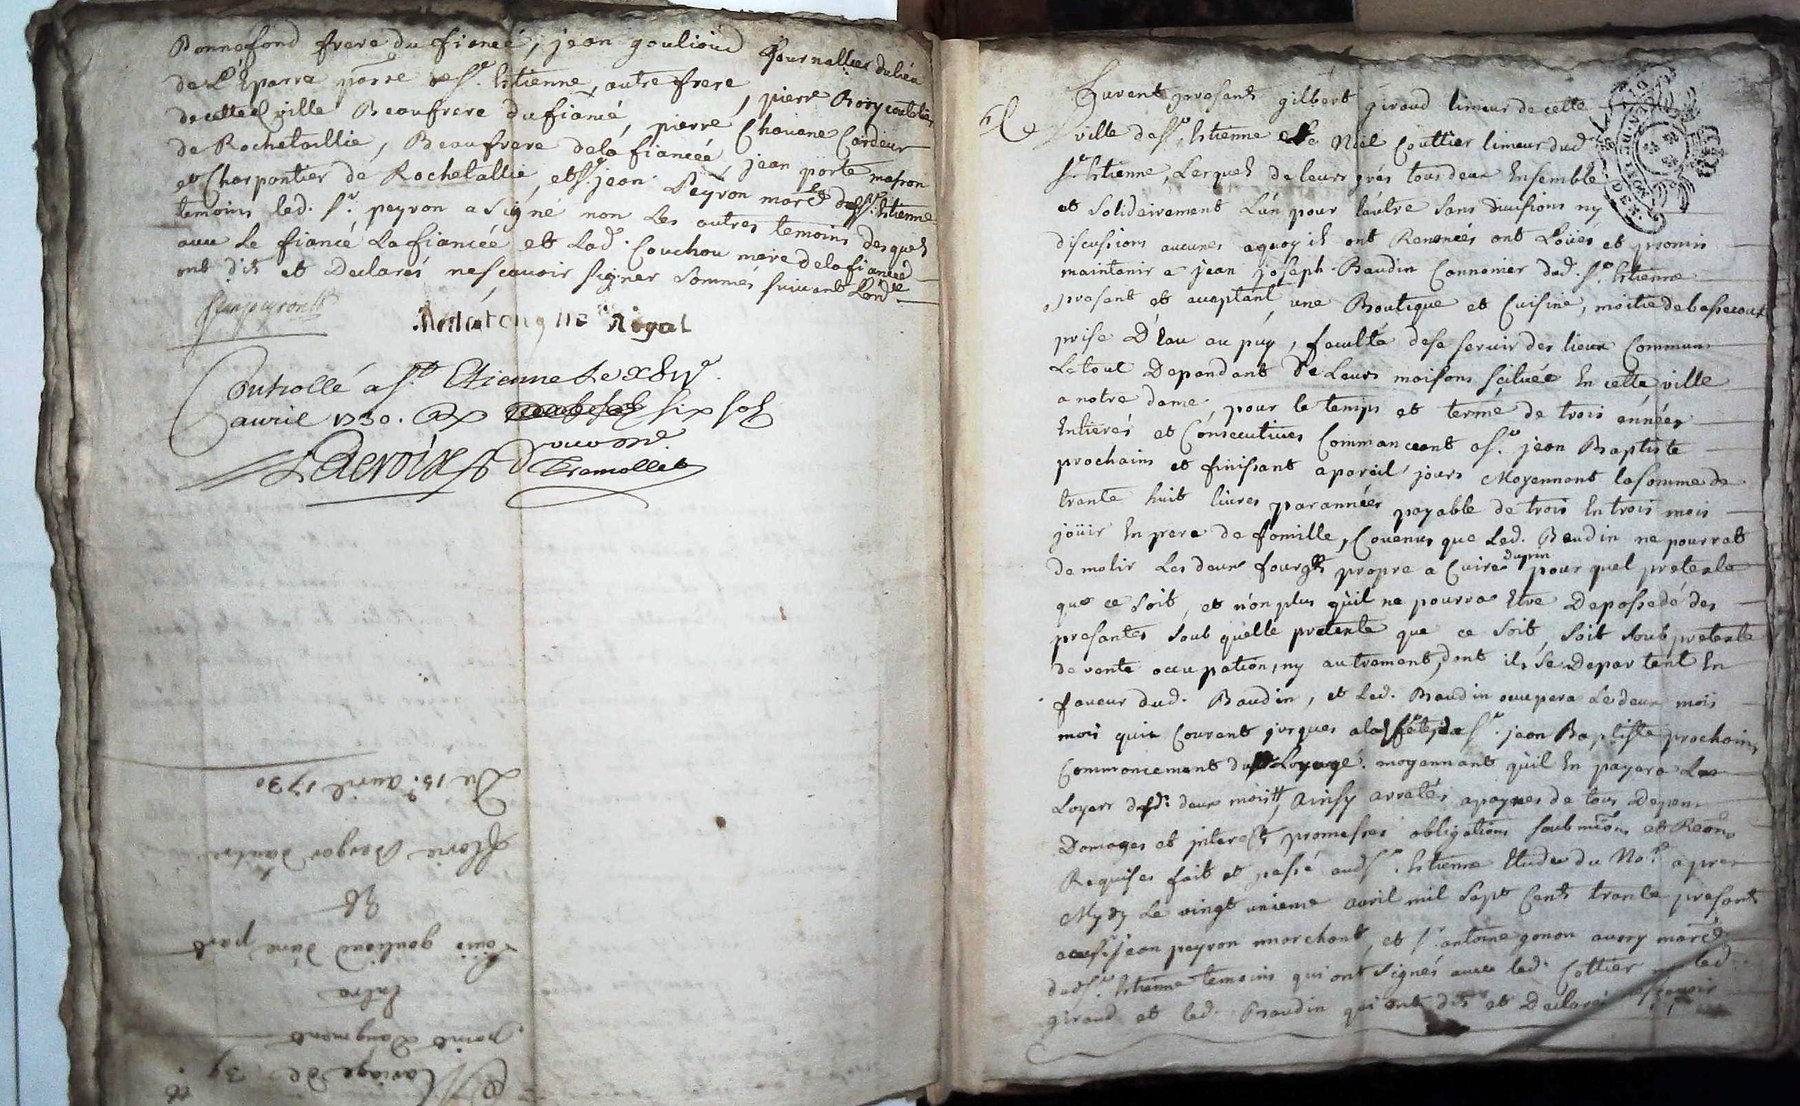 Bonnefond frere du fiancé, jean goulioud Journallier du lieu
de L'Eparre pͣrre de Sͭ. Estienne, autre frere, pierre Bory coutelier
de cette ville Beaufrere du fiancé, pierre Chovane Cardeur
de Rochetaillie, Beaufrere de la fiancée, jean porte masson
et Charpentier de Rochetallie, et Sͬ. jean Peyron march d de Sͭ. Estienne
temoins led. Sͬ. peyron a Signé non Les autres temoins desquels
avec Le fiancé La fiancée et Lad. Couchou mere de la fiancée
ont dit et Declarés nesçavoir signer Sommés suivant Lord ce
Jean peyron
Rigal
Controllé a Sͭ. Etienne Le
avril 1730. six sols
Delacroix
Tramollet
Du 15ͤ avril 1730
florie Berger dautre
Et
goulioud d'une part
Entre
point daugment
Mariage de
Furent presents gilbert giraud limeur de cette
ville de Sͭ. Estienne et Noël Couttier limeur dud.
Sͭ. Estienne, Lesquels de leurs grés tous deux Ensemble
et Solidairement L'un pour l'autre sans divisions ny
discussions aucunes aquoy ils ont Renoncés ont Loüés et promis
maintenir a jean joseph Baudin Cannonier dud. Sͭ. Estienne
present et acceptant, une Boutique et Cuisine, moitié de basse cour
prise D'Eau au puy, faculté de se servir des lieux Communs
Le tout Dependant de Leurs maisons scituée En cette ville
a notre dame, pour le temps et terme de trois années
Entieres et Consecutives Commanceant a Sͭ. jean Baptiste
prochain et finissant a pareil jours Moyennant la somme de
trante huit livres par années payable de trois En trois mois
joüir En pere de famille, Covenus que Led. Baudin ne pourrat
demolir Les deux fourgs propre a Cuire du prin pour quel pretexte
que ce soit, et n'on plus qu'il ne pourra Etre Depossedé des
presantes soub qu'elle pretexte que ce soit, soit soub pretexte
de vente occupation, ny autrement, dont ils se departent En
faveur dud. Baudin, et Led. Baudin occupera Le deux mois
mois qui Courent jusques a la fete de Sͭ. jean Baptiste prochain
Commancement du Loyage. moyennant qu'il En payera Les
Loyers desd. deux mois, Ainsy arretés a paynes de tous Depens
Domages et interest promesses obligations soubmions et Reons
Requises fait et passé aud Sͭ. Estienne Etude du Noͬᵉ. apres
Mydy Le vingt unieme avril mil sept Cents trante presents
jean peyron marchant, et Sͬ. antoine gonon aussy marchd
dud Sͭ. Estienne temoins qui ont signés avec led. Cottier non led.
giraud et led. Baudin qui ont dit et Declaré